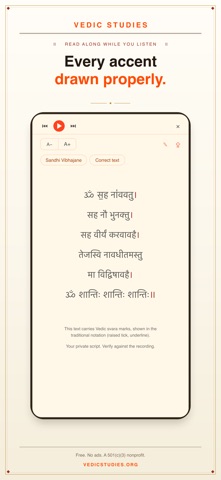 VEDIC STUDIES
READ ALONG WHILE YOU LISTEN
Every accent
drawn properly.
A- A+
Sandhi Vibhajane Correct text
ॐ स॒ह ना॑ववतु।
सह नौ॑ भुनक्तु।
सह वी॒र्यं॑ करवावहै।
तेजस्वि नावधीतमस्तु
मा वि॑द्विषावहै॑।
ॐ शान्तिः शान्तिः शान्तिः॑॥
This text carries Vedic svara marks, shown in the
traditional notation (raised tick, underline).
Your private script. Verify against the recording.
Free. No ads. A 501(c)(3) nonprofit.
VEDICSTUDIES.ORG